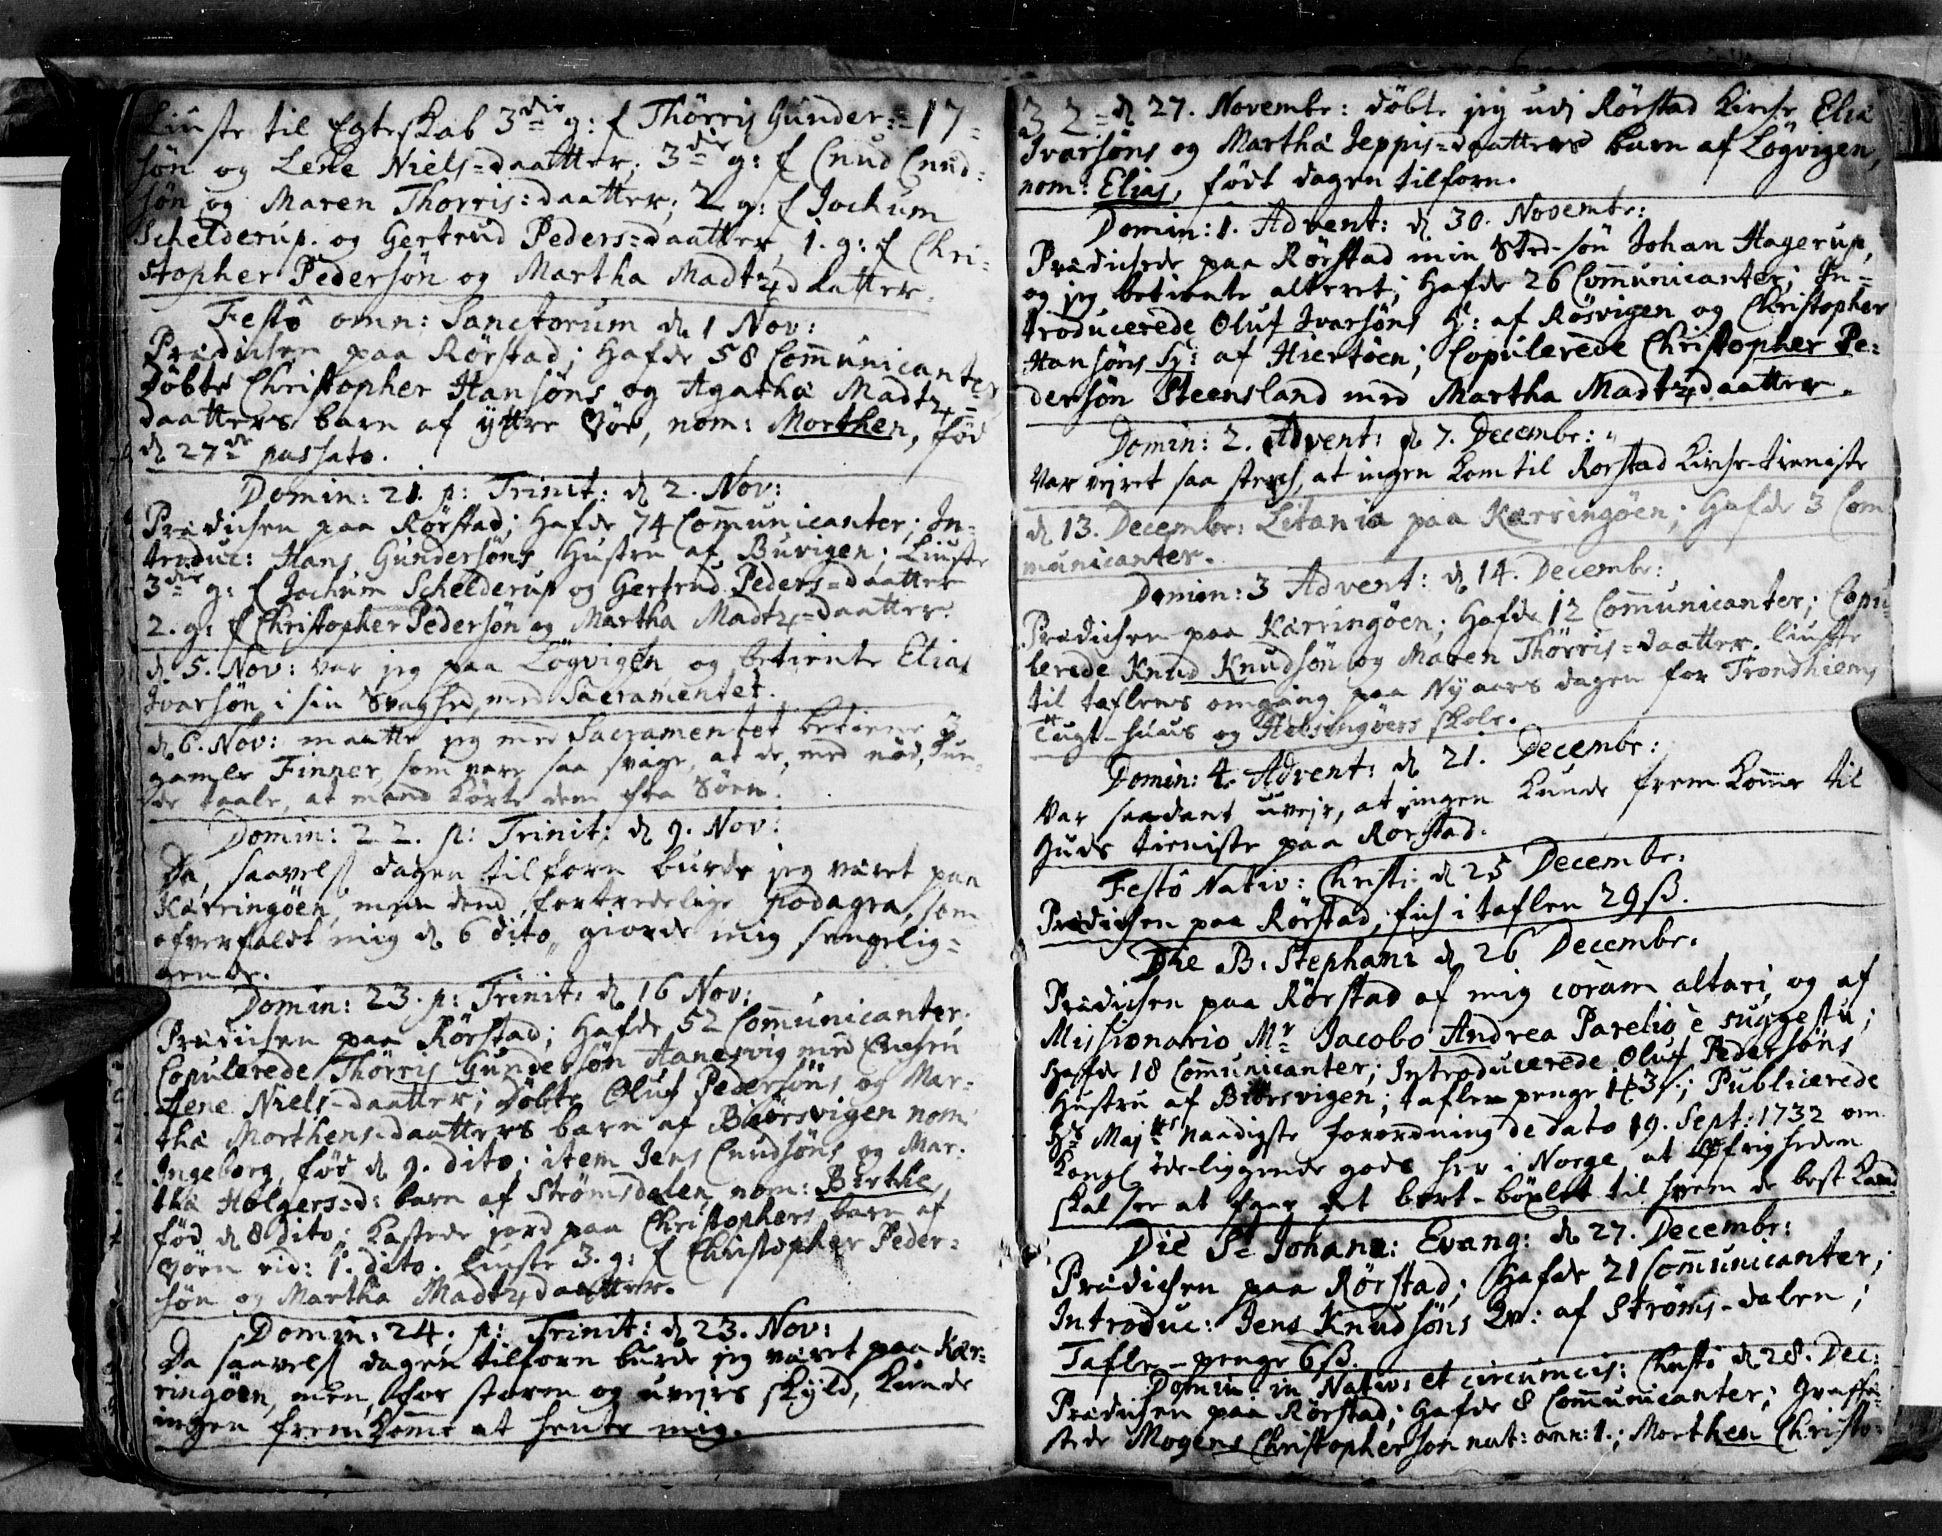 Liuste til Egteskab 3die g: f Thørris Gunder:= 17=
søn og Lene Niels=daatter; 3die g: f Cnud Cnud=
søn og Maren Thorris:daatter; 2 g: f Jochum
Schelderup. og Gertrud Peders=daatter, 1. g: f Chri=
stopher Pedersøn og Martha Madtz daatter.
Festô omn: Sanctorum d. 1 Nov:
Prædichen paa Rørstad; Hafde 58 Communicanter
Døbte Christopher Hansøns og Agathæ Madtz=
daatters barn af yttre Vør, nom: Morthen, fød
d. 27de passato.
Domin: 21. p: Trinit: d. 2. Nov:
Prædichen paa Rørstad; Hafde 74 Communicanter; In=
troduc: Hans Gundersøns Hustru af Buvigen; Liuste
3die g: f Jochum Schelderup og Gertrud Peders=daatter
2. g: f Christopher Pedersøn og Martha Madtz=daatter.
d. 5. Nov: var jeg paa Løgvigen og betiente Elias
Ivarsøn i sin Svaghed, med Sacramentet.
d. 6. Nov: maatte jeg med Sacramentet betiene 3
gamle Finner, som vare saa svage, at de, med nød, kun=
de taale, at mand kørte dem fra Søen.
Domin: 22. p: Trinit: d. 9. Nov:
Da, saavels dagen tilforn burde jeg været paa
Kærringøen, men dend fortredelige podagra, som
ofverfaldt mig d. 6 dito, giorde mig sengelig=
gende.
Domin: 23. p: Trinit: d. 16 Nov:
Prædichen paa Rørstad; Hafde 52 Communicanter,
Copulerede Thørris Gundersøn Aanesvig med
Lene Niels-daatter; Døbte Oluf Pedersøns og Mar=
thæ Morthens-daatters barn af Biørsvigen nom:
Ingeborg, fød d. 9. dito; item Jens Cnudsøns og Mar=
thæ Holgers=d: barn af Strømsdalen, nom: Birthe,
fød d. 8 dito; kastede jord paa Christophers barn af
Vøen vid: 1. dito. Liuste 3. g: f Christopher Peder=
søn og Martha Madtz daatter.
Domin: 24. p: Trinit: d. 23. Nov:
Da saavels dagen tilforn burde jeg været paa Kær=
ringøen, men, for storm og uvejrs skyld, kunde
ingen fremkomme at hente mig.
32= d. 27. Novembr: døbte jeg udj Rørstad Kirche Eliæ
Ivarsøns og Marthæ Jeppis=daatters barn af Løgvigen,
nom: Elias, født dagen tilforn.
Domin: 1. Advent: d. 30. Novembr:
Prædichede paa Rørstad min Sted-søn Johan Hagerup,
og jeg betiente alteret; Hafde 26 Communicanter; In=
troducerede Oluf Ivarsøns H: af Røsvigen og Christopher
Hansøns H: af Hiertøen; Copulerede Christopher Pe=
dersøn Steensland med Martha Madtz daatter.
Domin: 2. Advent: d. 7. Decembr:
Var vejret saa sterch, at ingen kom til Rørstad Kirche-tieniste
d. 13. Decembr: Litania paa Kærringøen; Hafde 3 Com
municanter.
Domin: 3 Advent: d. 14. Decembr:
Prædichen paa Kærringøen; Hafde 12 Communicanter; Copu=
lerede Knud Knudsøn og Maren Thørris=daatter. Liuste
til taflens omgang paa Nyaars dagen for Trondhiems
Tugt-huus og Helsingøers skole.
Domin: 4. Advent: d. 21. Decembr:
Var saadant uvejr, at ingen kunde fremkomme til
Guds tieniste paa Rørstad.
Festô Nativ: Christi d. 25 Decembr:
Prædichen paa Rørstad, fich i taflen 29 ß.
Die B. Stephani d. 26 Decembr.
Prædichen paa Rørstad af mig coram altari, og af
Missionario Mr Jacobo Andrea Parelio è suggestu;
Hafde 18 Communicanter; Introducerede Oluf Pedersøns
Hustru af Biørsvigen; tafle penge 43 ß.; Publicerede
Hs Majts naadigste forordning de dato 19. Sept: 1732 om
Kongl øde-liggende gods her i Norge, at Øfrigheden
skal see at faae det bort-bøxlet til hvem de best kand
Die St Johann: Evang: d. 27. Decembr:
Prædichen paa Rørstad; Hafde 21 Communicanter;
Introduc: Jens Knudsøns Qv: af Strøms-dalen;
Tafle-penge 6 ß.
Domin: in Nativ: et circumcis: Christi d. 28. Dec:
Prædichen paa Rørstad; Hafde 8 Communicanter; Graffæ=
stede Mogens Christophersøn nat: ann: 1.; Morthen Christo=